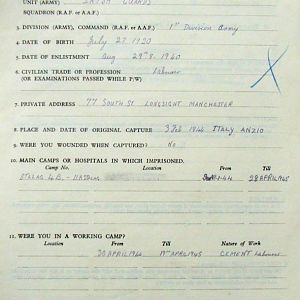 UNIT (ARMY) IRISH GUARDS
SQUADRON (R.A.F. or A.A.F.)
3. DIVISION (ARMY), COMMAND (R.A.F. or A.A.F.) 1st Division Army
4. DATE OF BIRTH July 27 1920
5. DATE OF ENLISTMENT Aug 29th 1940
6. CIVILIAN TRADE or PROFESSION Labourer
(OR EXAMINATIONS PASSED WHILE P/W)
7. PRIVATE ADDRESS 77 SOUTH ST LONGSIGHT MANCHESTER
8. PLACE AND DATE OF ORIGINAL CAPTURE 3 Feb 1944 ITALY ANZIO
9. WERE YOU WOUNDED WHEN CAPTURED? No
10. MAIN CAMPS OR HOSPITALS IN WHICH IMPRISONED.
Camp No. Location From Till
STALAG 4.B. 28 APRIL 1945
11. WERE YOU IN A WORKING CAMP?
Location From Till Nature of Work
30 APRIL 1944 APRIL 1945 CEMENT Labourer